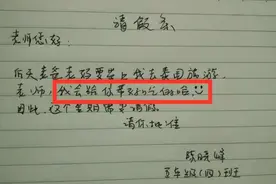 请假条
老师您好:
后天老爸老妈要带上我去泰国旅游
老师,我会给你带好吃的哦
因此,这个星期需要请假
请你批准
陈晓峰
五年级(四)班